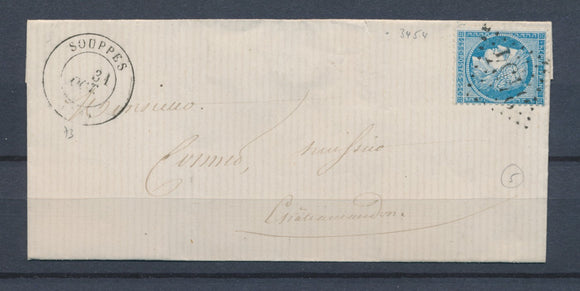 3454
SOUPPES
31
OCT.
73
Monsieur
huissier
Châteaulandon
5